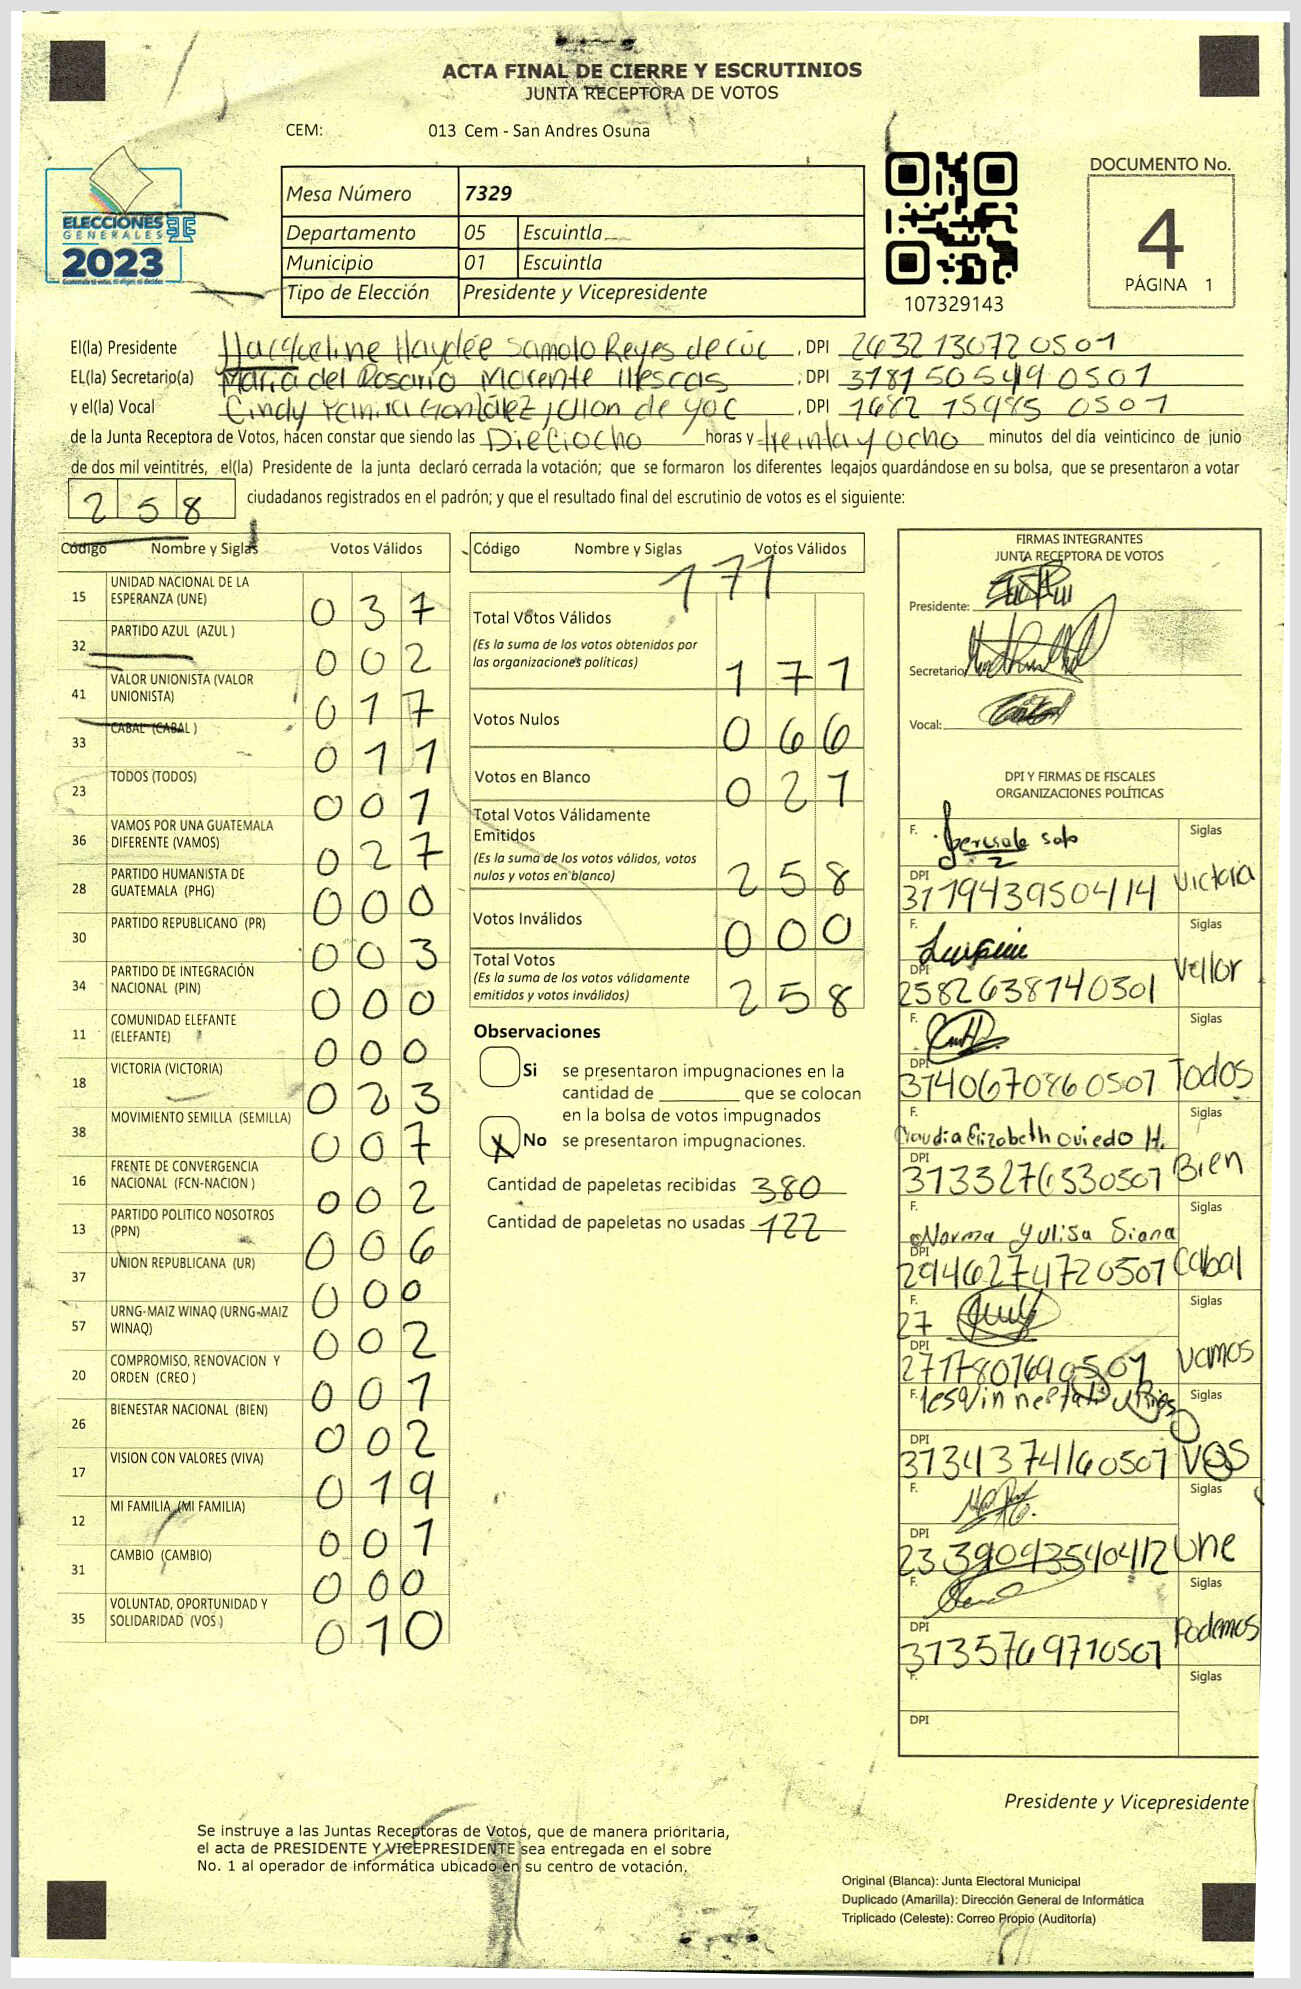 ACTA FINAL DE CIERRE Y ESCRUTINIOS
JUNTA RECEPTORA DE VOTOS
CEM: 013 Cem - San Andres Osuna
ELECCIONES
GENERALES
2023
Mesa Número 7329
Departamento 05 Escuintla
Municipio 01 Escuintla
Tipo de Elección Presidente y Vicepresidente
107329143
DOCUMENTO No.
4
PÁGINA 1
El(la) Presidente Hacqueline Haydée Samolo Reyes de cúc , DPI 2632130720501
EL(la) Secretario(a) María del Rosario Morente Illescas , DPI 3181505490501
y el(la) Vocal Cindy Yanira González de yoc , DPI 1682 15985 0501
de la Junta Receptora de Votos, hacen constar que siendo las Dieciocho horas y treinta y ocho minutos del día veinticinco de junio
de dos mil veintitrés, el(la) Presidente de la junta declaró cerrada la votación; que se formaron los diferentes legajos guardándose en su bolsa, que se presentaron a votar
258 ciudadanos registrados en el padrón; y que el resultado final del escrutinio de votos es el siguiente:
Código Nombre y Siglas Votos Válidos
15 UNIDAD NACIONAL DE LA ESPERANZA (UNE) 037
32 PARTIDO AZUL (AZUL ) 002
41 VALOR UNIONISTA (VALOR UNIONISTA) 017
33 CABAL (CABAL ) 011
23 TODOS (TODOS) 001
36 VAMOS POR UNA GUATEMALA DIFERENTE (VAMOS) 027
28 PARTIDO HUMANISTA DE GUATEMALA (PHG) 000
30 PARTIDO REPUBLICANO (PR) 003
34 PARTIDO DE INTEGRACIÓN NACIONAL (PIN) 000
11 COMUNIDAD ELEFANTE (ELEFANTE) 000
18 VICTORIA (VICTORIA) 023
38 MOVIMIENTO SEMILLA (SEMILLA) 007
16 FRENTE DE CONVERGENCIA NACIONAL (FCN-NACION ) 002
13 PARTIDO POLITICO NOSOTROS (PPN) 006
37 UNION REPUBLICANA (UR) 000
57 URNG-MAIZ WINAQ (URNG-MAIZ WINAQ) 002
20 COMPROMISO, RENOVACION Y ORDEN (CREO ) 001
26 BIENESTAR NACIONAL (BIEN) 002
17 VISION CON VALORES (VIVA) 019
12 MI FAMILIA (MI FAMILIA) 001
31 CAMBIO (CAMBIO) 000
35 VOLUNTAD, OPORTUNIDAD Y SOLIDARIDAD (VOS ) 010
Código Nombre y Siglas Votos Válidos
171
Total Votos Válidos
(Es la suma de los votos obtenidos por
las organizaciones políticas) 171
Votos Nulos 066
Votos en Blanco 021
Total Votos Válidamente
Emitidos
(Es la suma de los votos válidos, votos
nulos y votos en blanco) 258
Votos Inválidos 000
Total Votos
(Es la suma de los votos válidamente
emitidos y votos inválidos) 258
Observaciones
Si se presentaron impugnaciones en la
cantidad de ________ que se colocan
en la bolsa de votos impugnados
X No se presentaron impugnaciones.
Cantidad de papeletas recibidas 380
Cantidad de papeletas no usadas 122
FIRMAS INTEGRANTES
JUNTA RECEPTORA DE VOTOS
Presidente:
Secretario
Vocal:
DPI Y FIRMAS DE FISCALES
ORGANIZACIONES POLÍTICAS
F. Siglas
DPI 317943950414 Victoria
F. Siglas
DPI 2582638740301 Vallor
F. Siglas
DPI 3140670860501 Todos
F. Claudia Elizabeth Oviedo H. Siglas
DPI 3133276530501 Bien
F. Norma Yulisa Siana Siglas
DPI 2946274720501 Cabal
F. 27 Siglas
DPI 2717801690501 Vamos
F. Siglas
DPI 3734374160501 VOS
F. Siglas
DPI 2339093540412 Une
F. Siglas
DPI 3135769710501 Podemos
F. Siglas
DPI
Presidente y Vicepresidente
Se instruye a las Juntas Receptoras de Votos, que de manera prioritaria,
el acta de PRESIDENTE Y VICEPRESIDENTE sea entregada en el sobre
No. 1 al operador de informática ubicado en su centro de votación.
Original (Blanca): Junta Electoral Municipal
Duplicado (Amarilla): Dirección General de Informática
Triplicado (Celeste): Correo Propio (Auditoría)